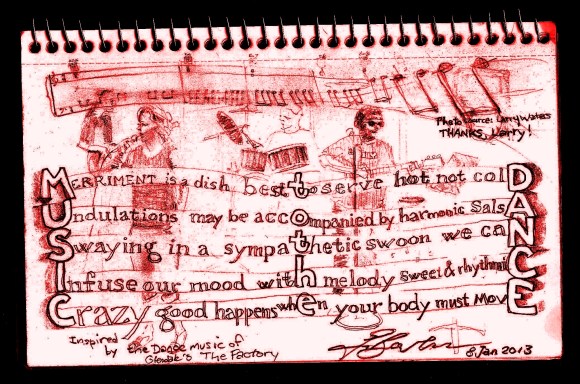 Photo source: Larry Waters
THANKS, Larry!
MERRIMENT is a dish best to serve hot not colD
Undulations may be accompanied by harmonic SalsA
Swaying in a sympathetic swoon we caN
Infuse our mood with melody sweet & rhythmiC
Crazy good happens when your body must MovE
Inspired
by the Dance music of
The Factory
8 Jan 2013